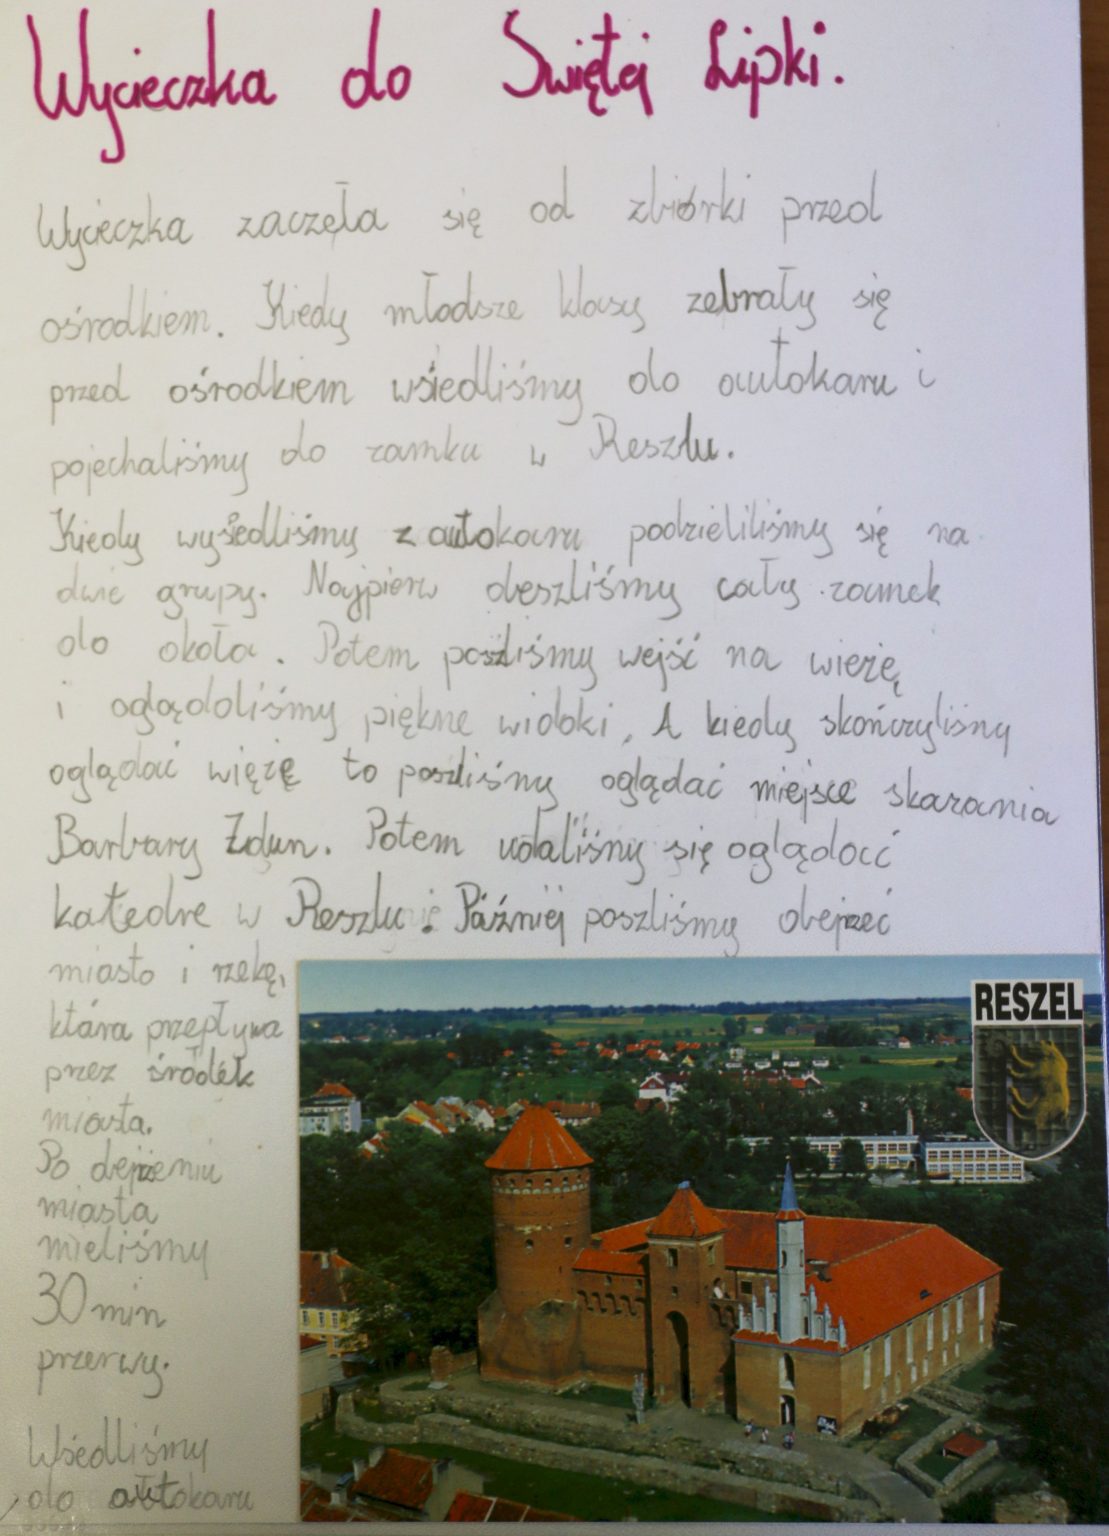 Wycieczka do Swiętej Lipki.
Wycieczka zaczęła się od zbiórki przed
ośrodkiem. Kiedy młodsze klasy zebrały się
przed ośrodkiem wsiedliśmy do autokaru i
pojechaliśmy do zamku w Reszlu.
Kiedy wysiedliśmy z autokaru podzieliliśmy się na
dwie grupy. Najpierw obeszliśmy cały zamek
do okoła. Potem poszliśmy wejść na wieżę,
i oglądoliśmy piękne widoki. A kiedy skończyliśmy
oglądać więżę to poszliśmy oglądać miejsce skazania
Barbary Zdun. Potem udaliśmy się oglądać
katedre w Reszlu. Później poszliśmy obejrzeć
miasto i rzekę,
która przepływa
przez środek
miasta.
Po obejrzeniu
miasta
mieliśmy
30 min
przerwy.
Wsiedliśmy
do autokaru
RESZEL